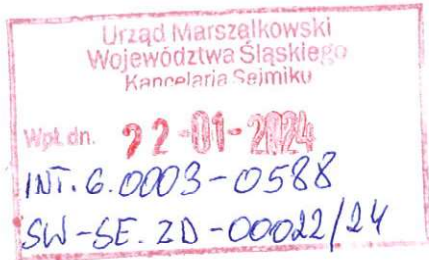 Urząd Marszałkowski
Województwa Śląskiego
Kancelaria Sejmiku
Wpł. dn. 22-01-2024
INT.6.0003-0588
SW-SE.ZD-00022/24